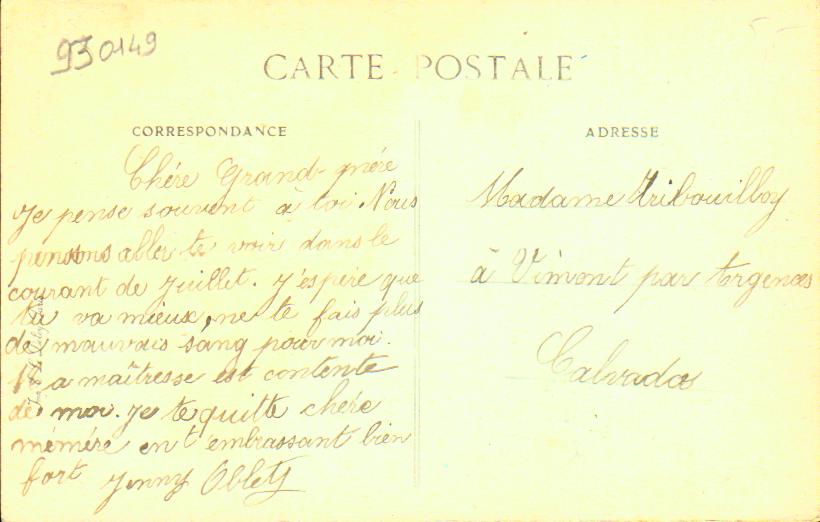 930149
CARTE POSTALE
CORRESPONDANCE
Chére Grand-mére
Je pense souvent à toi. Nous
pensons aller te voir dans le
courant de Juillet. J'espère que
tu va mieux, ne te fais plus
de mauvais sang pour moi.
Ma maîtresse est contente
de moi. Je te quitte chére
mémére en t'embrassant bien
fort Jenny
ADRESSE
Madame Tribouilloy
à Vimont par Argences
Calvados